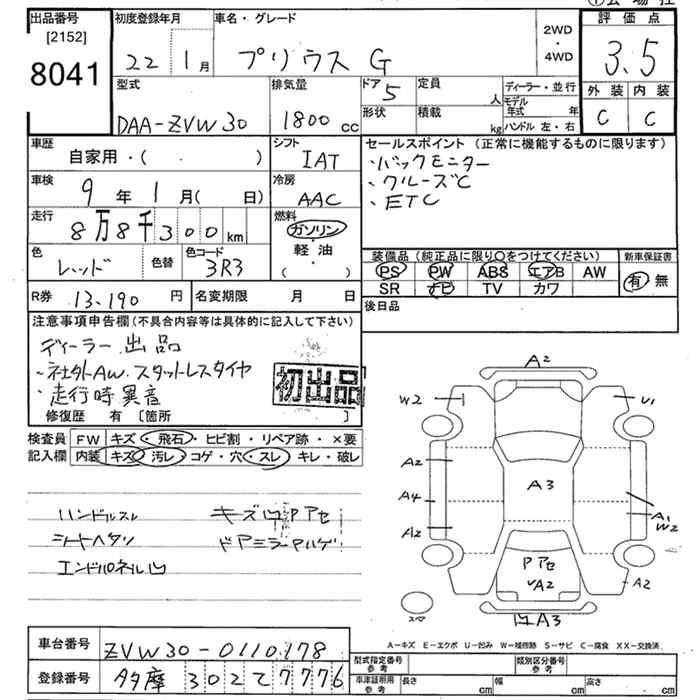 出品番号
[2152]
8041
初度登録年月
22 1月
車名・グレード
プリウス G
2WD
・
4WD
評価点
3.5
外装 内装
C C
型式
DAA-ZVW30
排気量
1800 cc
ドア
5
形状
定員
人
積載
kg
ディーラー・並行
モデル年式 年
ハンドル 左・右
車歴
自家用・( )
シフト
IAT
車検
9年 1月( 日)
冷房
AAC
走行
8万8千300 km
燃料
ガソリン
・
軽油
( ・ )
色
レッド
色替
色コード
3R3
R券 13,190 円
名変期限 月 日
セールスポイント(正常に機能するものに限ります)
・バックモニター
・クルーズC
・ETC
装備品(純正品に限り○をつけてください)
PS PW ABS エアB AW
SR ナビ TV カワ
新車保証書
有・無
後日品
注意事項申告欄(不具合内容等は具体的に記入して下さい)
ディーラー出品
・社外AW.スタットレスタイヤ
・走行時異音
初出品
修復歴 有〔箇所 〕
検査員記入欄
FW キズ・飛石・ヒビ割・リペア跡・×要
内装 キズ・汚レ・コゲ・穴・スレ・キレ・破レ
ハンドルスレ
シートヘタリ
エンドパネル凹
キズ凹Pアセ
ドアミラーPハゲ
A2
W2
U1
A2
A4
A2
A3
A1
W2
Pアセ
A2
A2
スペア
凹A3
A-キズ E-エクボ U-凹み W-補修跡 S-サビ C-腐食 XX-交換済
車台番号 ZVW30-0110178
登録番号 多摩 302て7776
型式指定番号
参考
類別区分番号
参考
車庫証明用
参考
長さ cm
幅 cm
高さ cm